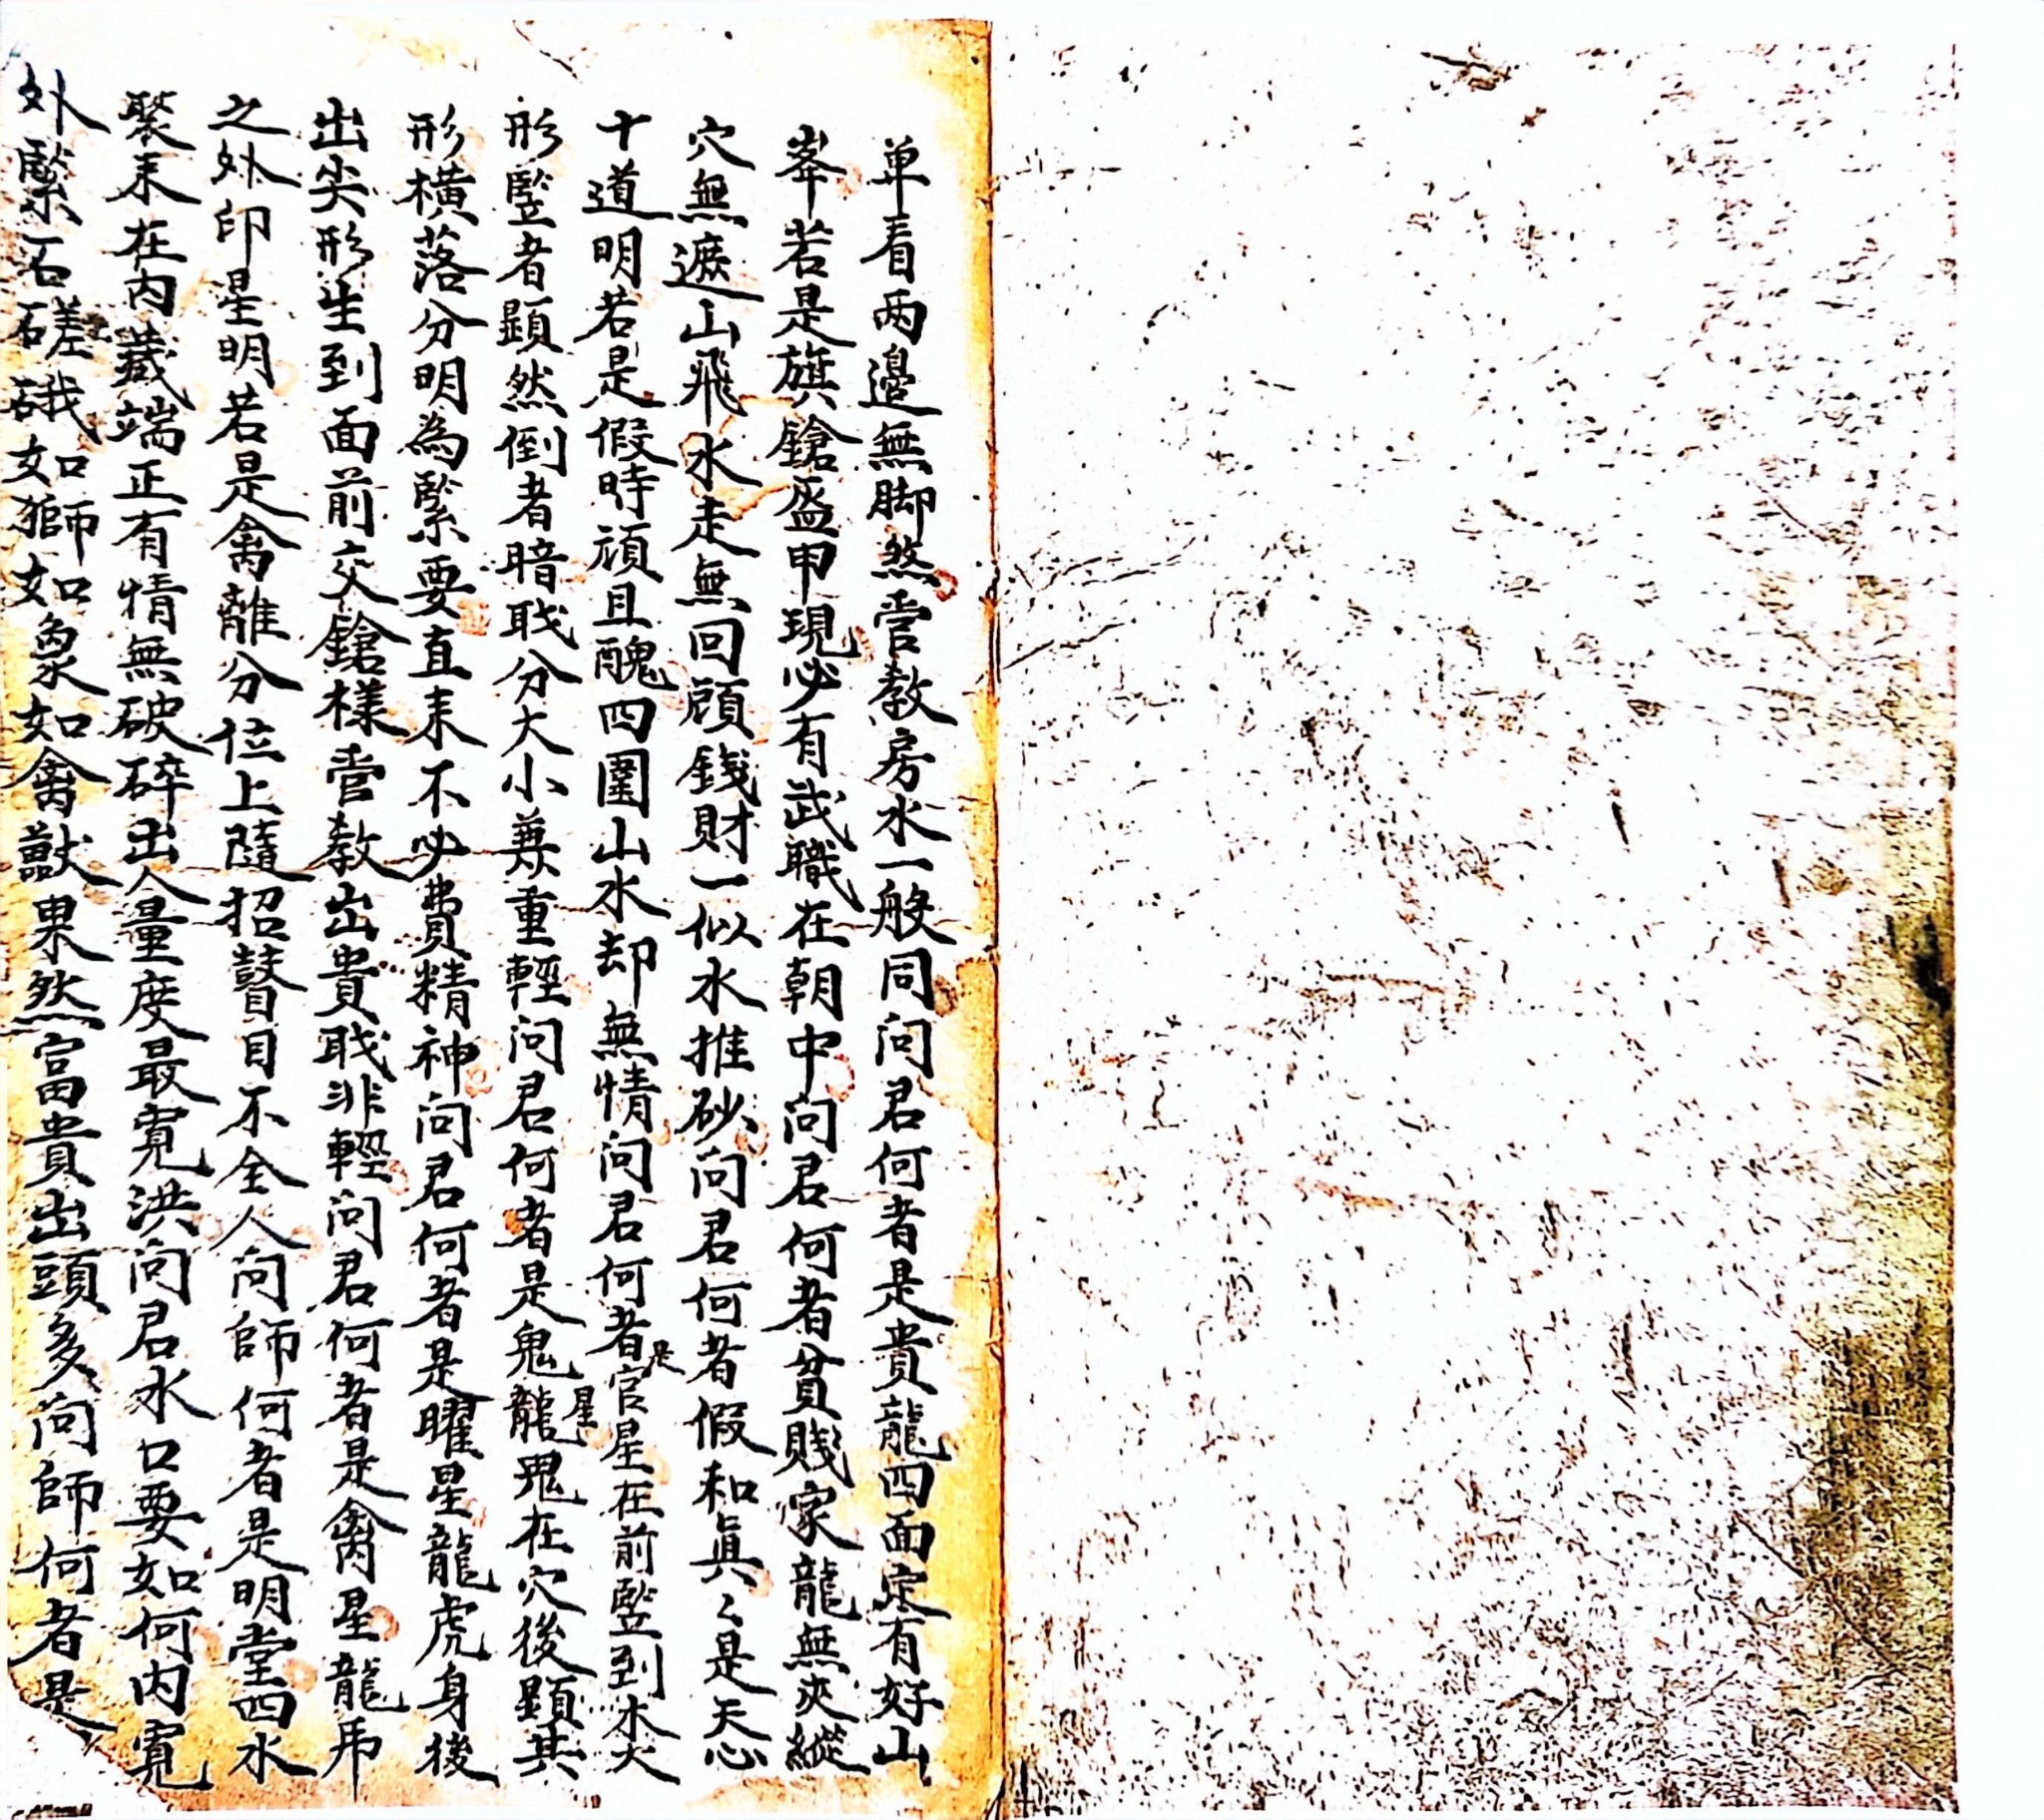 单看两邊無脚煞管教房水一般同问君何者是貴龍四面定有好山
峯若是旗鎗盔甲現必有武職在朝中问君何者貧賤家龍無夾縱
穴無遮山飛水走無回顧錢財一似水推砂问君何者假和眞〻是天心
十道明若是假時頑且醜四圍山水却無情问君何者是官星在前竪到木火
形竪者顕然倒者暗戝分大小兼重輕问君何者是鬼星龍鬼在穴後顕其
形橫落分明為緊要直耒不必費精神问君何者是曜星龍虎身後
出尖形生到面前交鎗樣管教出貴戝非輕问君何者是禽星龍虎
之外印星明若是禽離分位上隨招瞽目不全人问師何者是明堂四水
聚耒在内藏端正有情無破碎出人量度最寬洪问君水口要如何内寬
外緊石磋硪如獅如象如禽獸果然富貴出頭多问師何者是